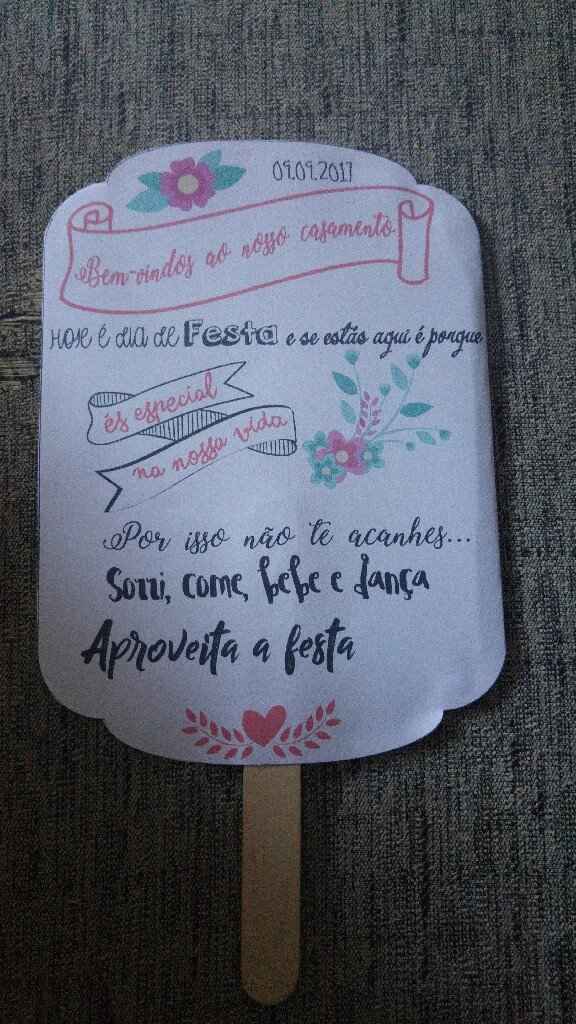 09.09.2017
Bem-vindos ao nosso casamento
HOJE É DIA DE Festa e se estás aqui é porque
és especial
na nossa vida
Por isso não te acanhes...
Sorri, come, bebe e dança
Aproveita a festa